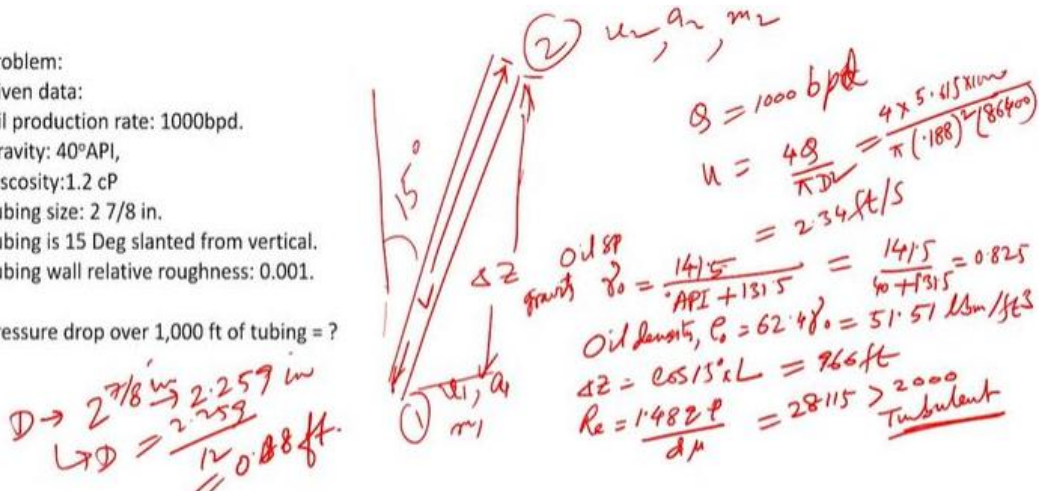 roblem:
iven data:
il production rate: 1000bpd.
ravity: 40°API,
iscosity:1.2 cP
ubing size: 2 7/8 in.
ubing is 15 Deg slanted from vertical.
ubing wall relative roughness: 0.001.
essure drop over 1,000 ft of tubing = ?
D → 2 7/8 in → 2.259 in
↳ D = 2.259 / 12
= 0.188 ft.
15°
ΔZ
① u1, a1
m1
② u2, a2, m2
Q = 1000 bpd
u = 4Q / πD² = 4 x 5.615 x 1000 / π(.188)²(86400)
= 2.34 ft/s
Oil sp
gravity γo = 141.5 / °API + 131.5 = 141.5 / 40 + 131.5 = 0.825
Oil density, ρo = 62.4γo = 51.51 lbm/ft3
ΔZ = cos15° x L = 966 ft
Re = 1.48qρ / dμ = 28115 > 2000
Turbulent